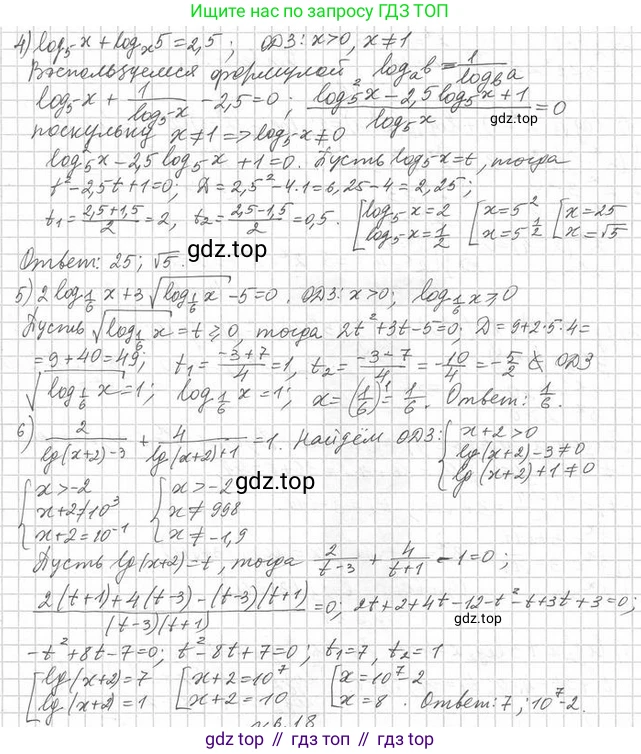 Ищите нас по запросу ГДЗ ТОП
4) log₅x + logₓ5 = 2,5; ОДЗ: x>0, x≠1
Воспользуемся формулой logₐb = 1/log_b a
log₅x + 1/log₅x - 2,5 = 0; (log²₅x - 2,5log₅x + 1)/log₅x = 0
поскольку x≠1 => log₅x≠0
log²₅x - 2,5log₅x + 1 = 0. Пусть log₅x = t, тогда
t² - 2,5t + 1 = 0; D = 2,5² - 4·1 = 6,25 - 4 = 2,25;
t₁ = (2,5+1,5)/2 = 2, t₂ = (2,5-1,5)/2 = 0,5. [log₅x = 2 [x = 5² [x = 25
log₅x = 1/2 x = 5^(1/2) x = √5
Ответ: 25; √5.
gdz.top
5) 2log_(1/6) x + 3√(log_(1/6) x) - 5 = 0. ОДЗ: x>0; log_(1/6) x ⩾ 0
Пусть √(log_(1/6) x) = t ⩾ 0, тогда 2t² + 3t - 5 = 0; D = 9 + 2·5·4 =
= 9 + 40 = 49; t₁ = (-3+7)/4 = 1, t₂ = (-3-7)/4 = -10/4 = -5/2 ∉ ОДЗ
√(log_(1/6) x) = 1; log_(1/6) x = 1; x = (1/6)¹ = 1/6. Ответ: 1/6.
6) 2/(lg(x+2)-3) + 4/(lg(x+2)+1) = 1. Найдём ОДЗ: {x+2>0
lg(x+2)-3≠0
lg(x+2)+1≠0
{x>-2 {x>-2
x+2≠10³ x≠998
x+2=10⁻¹ x≠-1,9
gdz.top
Пусть lg(x+2) = t, тогда 2/(t-3) + 4/(t+1) - 1 = 0;
(2(t+1)+4(t-3)-(t-3)(t+1))/((t-3)(t+1)) = 0; 2t+2+4t-12-t²-t+3t+3=0;
-t²+8t-7=0; t²-8t+7=0; t₁=7, t₂=1
[lg(x+2)=7 [x+2=10⁷ [x=10⁷-2
lg(x+2)=1 x+2=10 x=8. Ответ: 7; 10⁷-2.
gdz.top